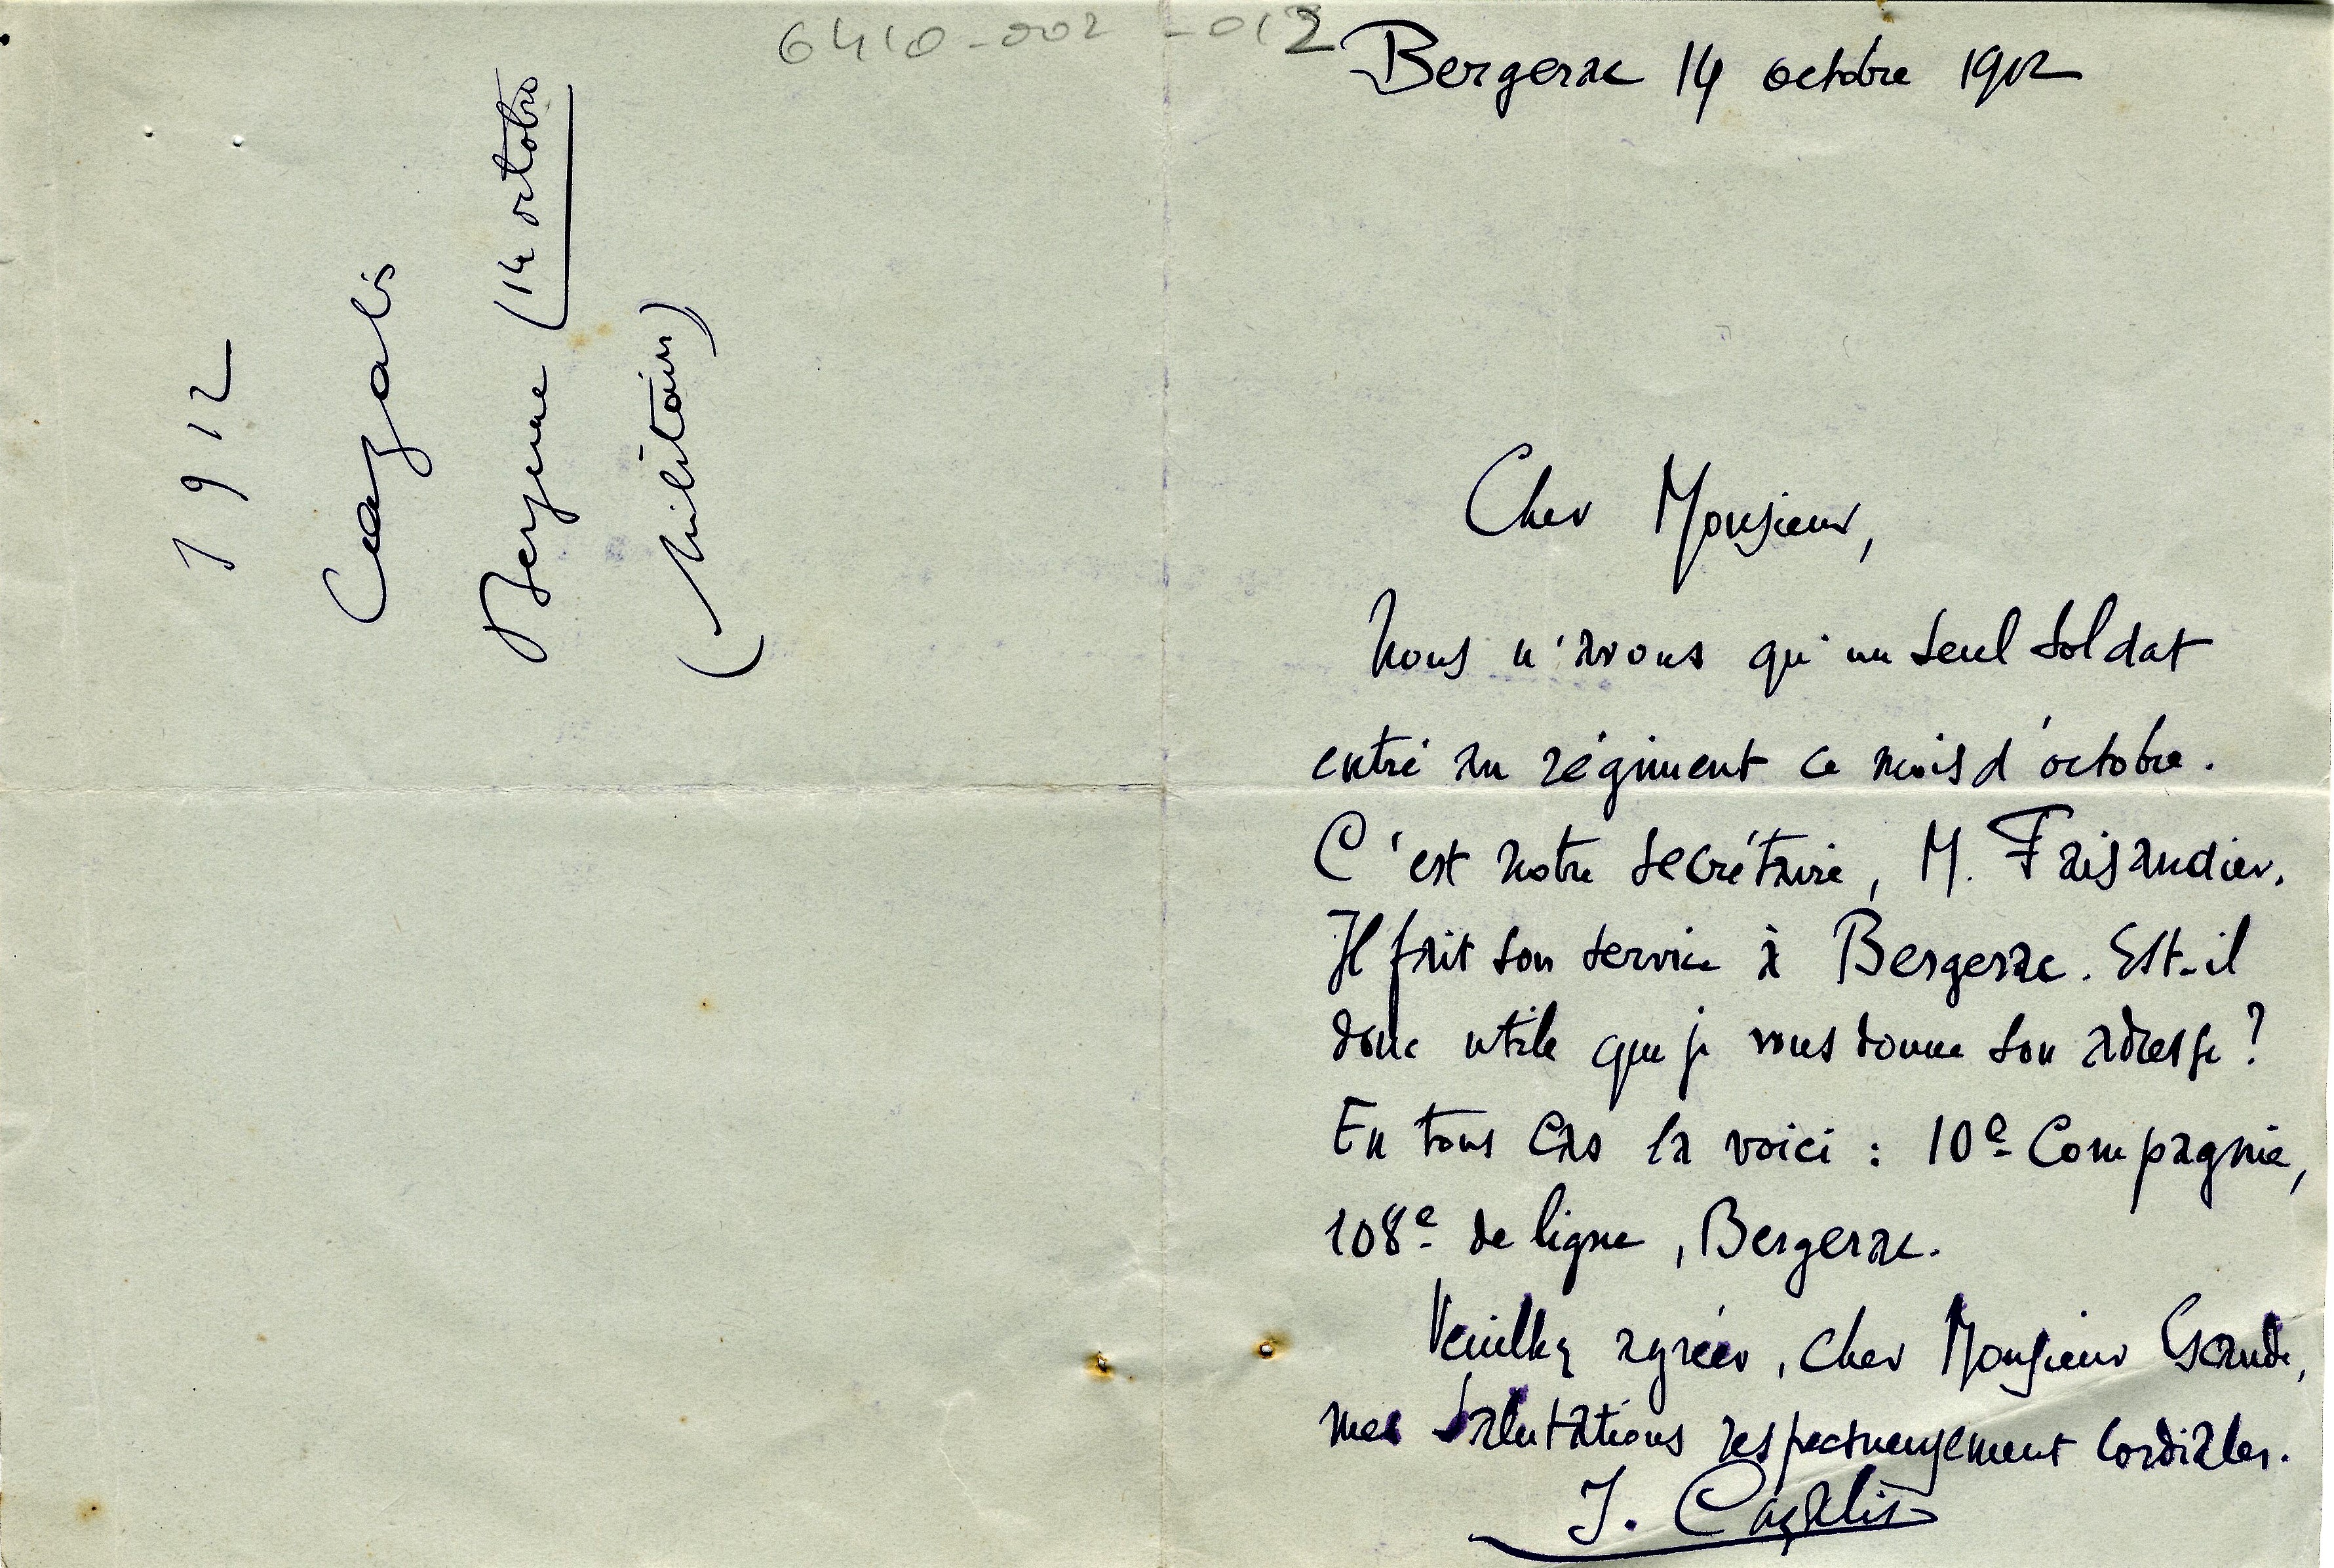 6410-002-012
1912
Cazalis
Bergerac (14 octobre
(Militaires)
Bergerac 14 octobre 1912
Cher Monsieur,
Nous n'avons qu'un seul soldat
entré au régiment ce mois d'octobre.
C'est notre secrétaire, M. Faisandier.
Il fait son service à Bergerac. Est-il
donc utile que je vous donne son adresse ?
En tous cas la voici : 10e Compagnie,
108e de ligne, Bergerac.
Veuillez agréer, cher Monsieur
mes salutations respectueusement cordiales.
J. Cazalis